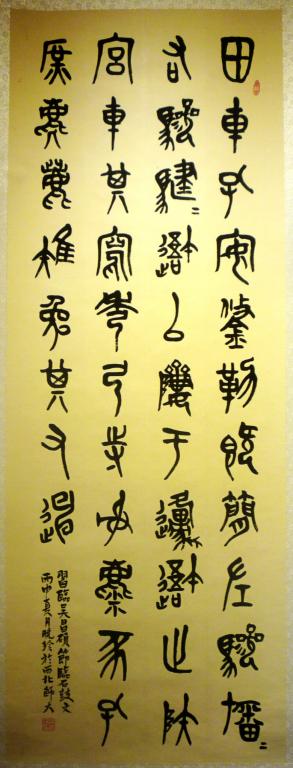 田車孔安鋚勒既簡左驂旛=
右驂騝=避以隮于邍避止陜
宮車其寫秀弓寺射麋豕孔
庶麀鹿雉兔其又
習臨吳昌碩節臨石鼓文
丙申真月晚於西北師大